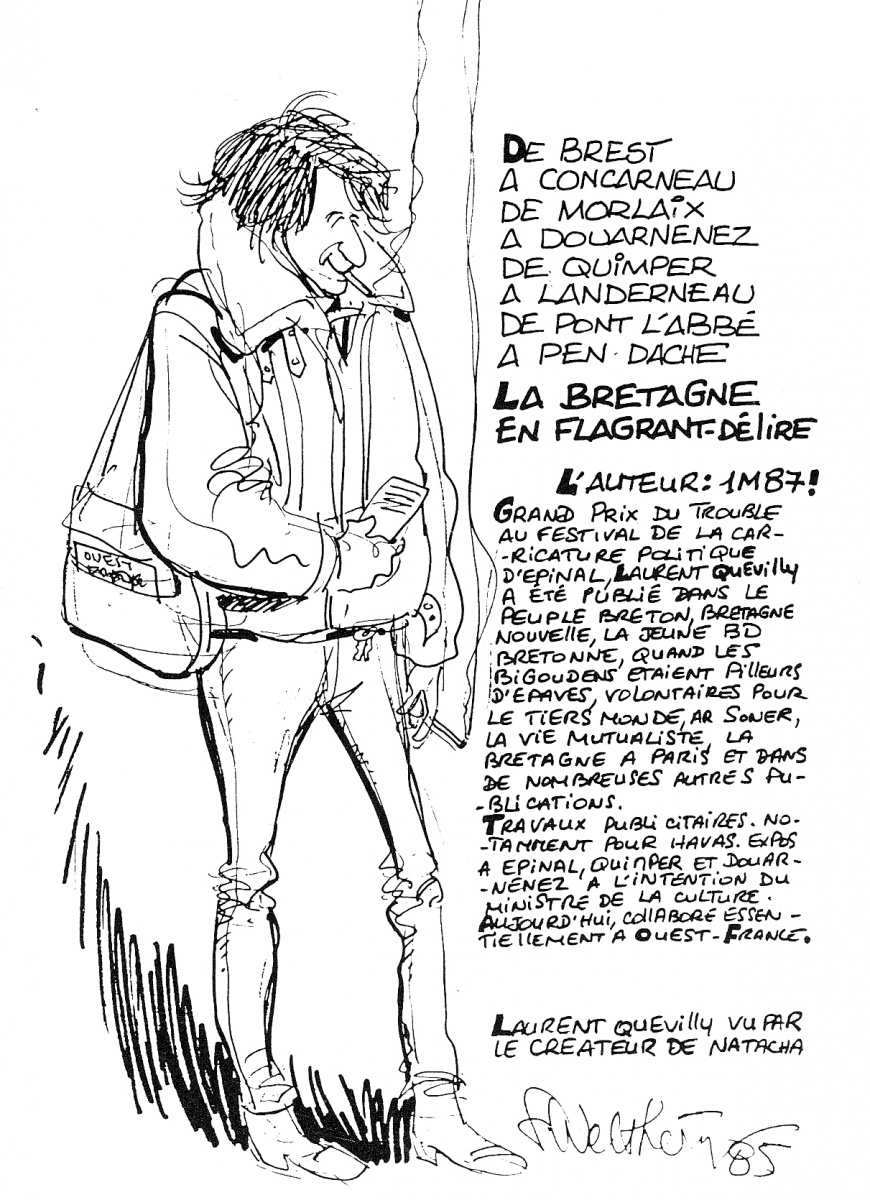 DE BREST
A CONCARNEAU
DE MORLAIX
A DOUARNENEZ
DE QUIMPER
A LANDERNEAU
DE PONT L'ABBÉ
A PEN-DACHE
LA BRETAGNE
EN FLAGRANT-DÉLIRE
L'AUTEUR: 1M87!
GRAND PRIX DU TROUBLE
AU FESTIVAL DE LA CAR-
-RICATURE POLITIQUE
D'EPINAL, LAURENT QUEVILLY
A ÉTÉ PUBLIÉ DANS LE
PEUPLE BRETON, BRETAGNE
NOUVELLE, LA JEUNE BD
BRETONNE, QUAND LES
BIGOUDENS ETAIENT PILLEURS
D'EPAVES, VOLONTAIRES POUR
LE TIERS MONDE, AR SONER,
LA VIE MUTUALISTE, LA
BRETAGNE A PARIS ET DANS
DE NOMBREUSES AUTRES PU-
-BLICATIONS.
TRAVAUX PUBLICITAIRES. NO-
-TAMMENT POUR HAVAS. EXPOS
A EPINAL, QUIMPER ET DOUAR-
-NENEZ A L'INTENTION DU
MINISTRE DE LA CULTURE.
AUJOURD'HUI, COLLABORE ESSEN-
TIELLEMENT A OUEST-FRANCE.
LAURENT QUEVILLY VU PAR
LE CREATEUR DE NATACHA
OUEST
F. Walthéry 85